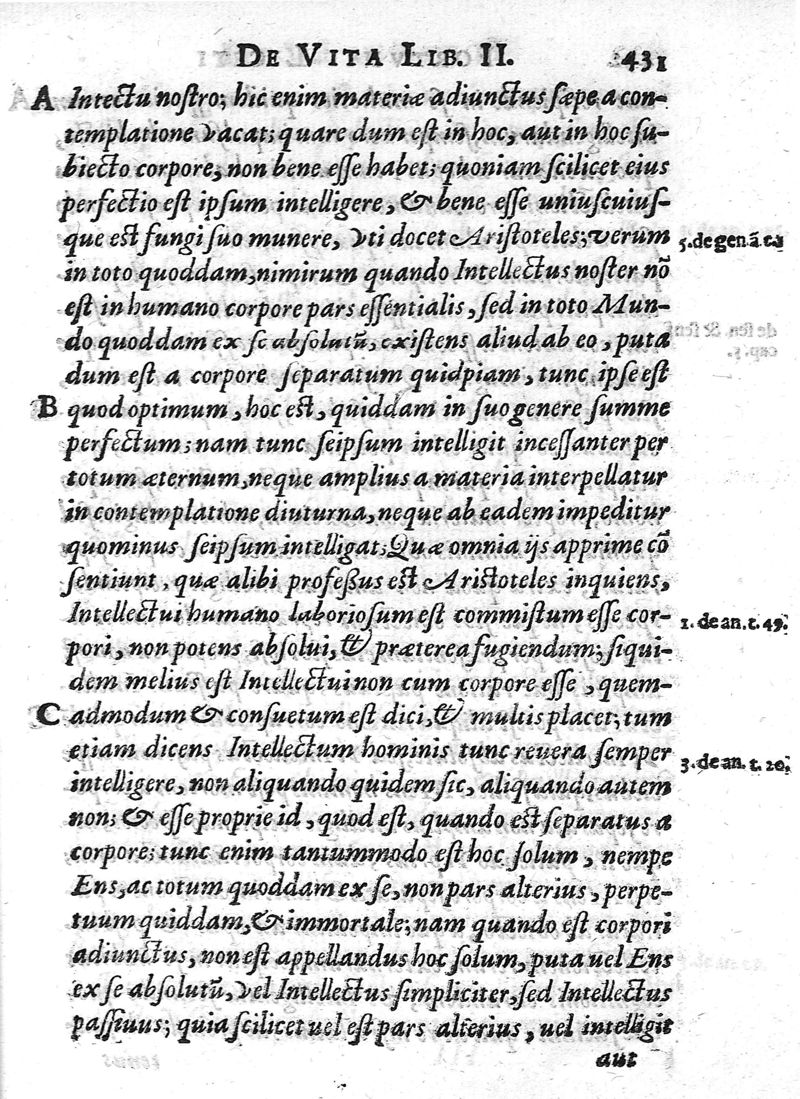 DE VITA LIB. II. 431
A Intectu nostro; hic enim materiæ adiunctus sæpe a con-
templatione vacat; quare dum est in hoc, aut in hoc su-
biecto corpore, non bene esse habet; quoniam scilicet eius
perfectio est ipsum intelligere, & bene esse uniuscuius-
que est fungi suo munere, vti docet Aristoteles; verum 5. de gen ā. c. 1
in toto quoddam, nimirum quando Intellectus noster nō
est in humano corpore pars essentialis, sed in toto Mun-
do quoddam ex se absolutū, existens aliud ab eo, puta
dum est a corpore separatum quidpiam, tunc ipse est
B quod optimum, hoc est, quiddam in suo genere summe
perfectum; nam tunc seipsum intelligit incessanter per
totum æternum, neque amplius a materia interpellatur
in contemplatione diuturna, neque ab eadem impeditur
quominus seipsum intelligat; Quæ omnia ijs apprime cō
sentiunt, quæ alibi professus est Aristoteles inquiens,
Intellectui humano laboriosum est commistum esse cor- 1. de an. t. 49.
pori, non potens absolui, & præterea fugiendum; siqui-
dem melius est Intellectui non cum corpore esse, quem-
C admodum & consuetum est dici, & multis placet; tum
etiam dicens Intellectum hominis tunc reuera semper 3. de an. t. 20.
intelligere, non aliquando quidem sic, aliquando autem
non; & esse proprie id, quod est, quando est separatus a
corpore; tunc enim tantummodo est hoc solum, nempe
Ens, ac totum quoddam ex se, non pars alterius, perpe-
tuum quiddam, & immortale; nam quando est corpori
adiunctus, non est appellandus hoc solum, puta uel Ens
ex se absolutū, vel Intellectus simpliciter, sed Intellectus
passiuus; quia scilicet uel est pars alterius, uel intelligit
aut